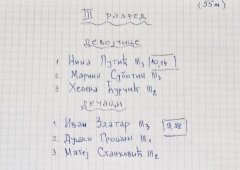 (55m)
III разред
девојчице
1. Нина Путић III₃ 10,14
2. Марина Суботин III₃
3. Хелена Ћурчић III₂
дечаци
1. Иван Златар III₃ 9,88
2. Душко Гроцин III₁
3. Матеј Станковић III₂